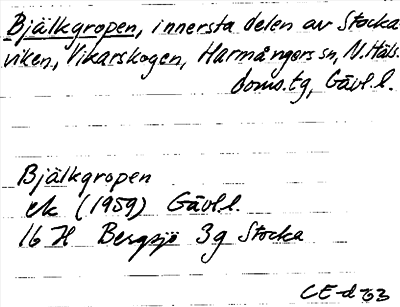 Bjälkgropen, innersta delen av Stocka
viken, Vikarskogen, Harmångers sn, N. Häls.
doms.tg, Gävl.l.
Bjälkgropen
ek (1959) Gävl.l.
16 H Bergsjö 3g Stocka
CE-d 63